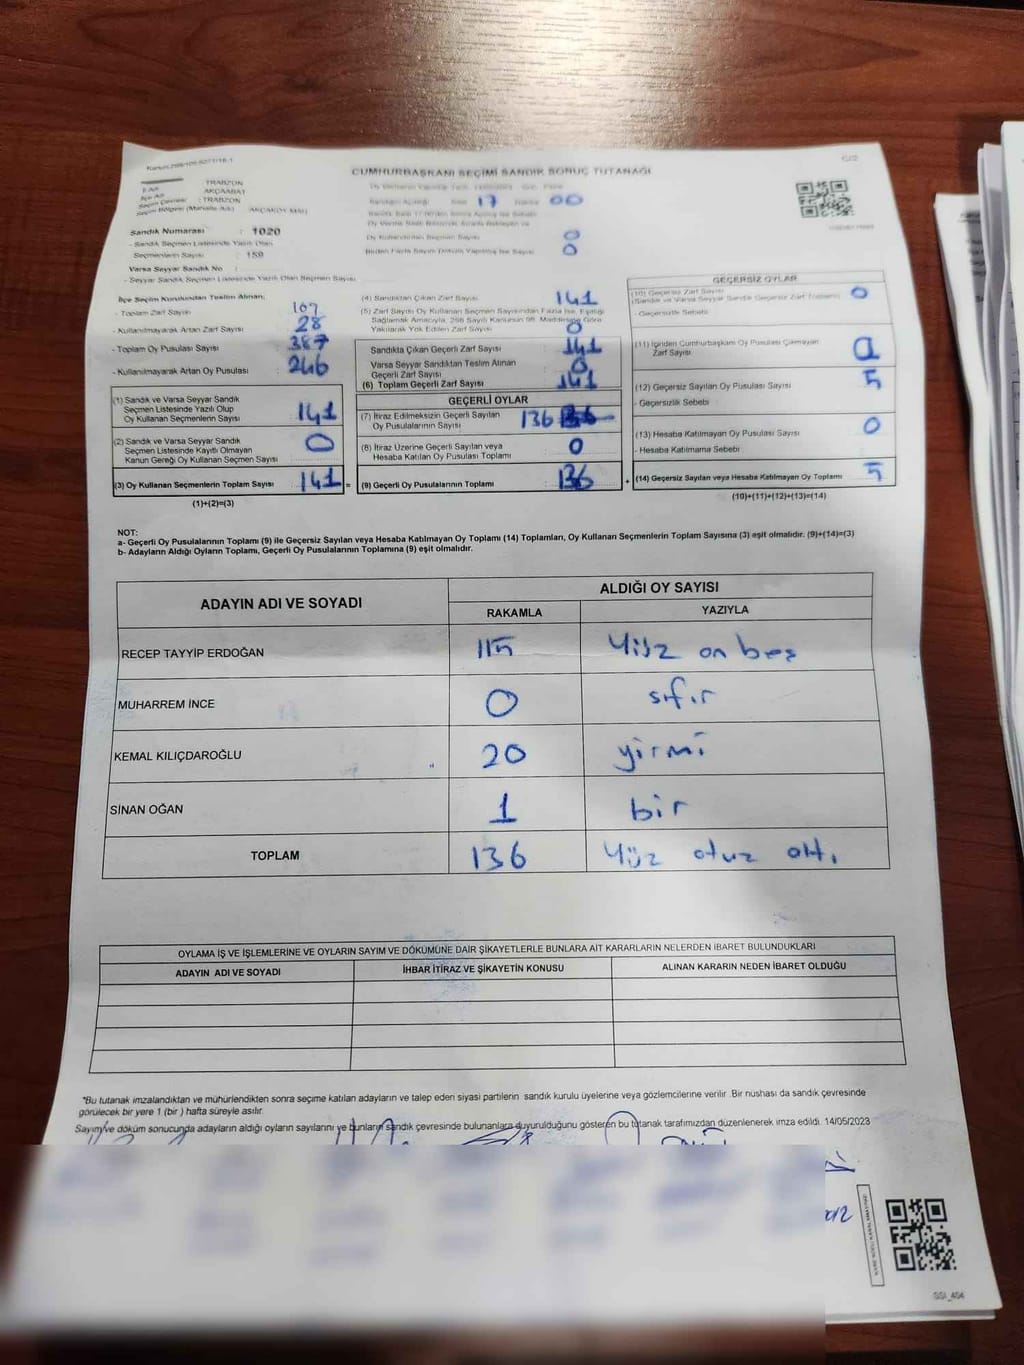 CUMHURBAŞKANI SEÇİMİ SANDIK SONUÇ TUTANAĞI
İl Adı : TRABZON
İlçe Adı : AKÇAABAT
Seçim Çevresi : TRABZON
Seçim Bölgesi (Mahalle Adı) : AKÇAKÖY MAH.
17 00
Sandık Numarası : 1020
- Sandık Seçmen Listesinde Yazılı Olan
Seçmenlerin Sayısı : 159
Varsa Seyyar Sandık No :
- Seyyar Sandık Seçmen Listesinde Yazılı Olan Seçmen Sayısı
Oy Kullandırılan Seçmen Sayısı 0
0
İlçe Seçim Kurulundan Teslim Alınan;
- Toplam Zarf Sayısı 107
- Kullanılmayarak Artan Zarf Sayısı 28
- Toplam Oy Pusulası Sayısı 387
- Kullanılmayarak Artan Oy Pusulası 246
(1) Sandık ve Varsa Seyyar Sandık
Seçmen Listesinde Yazılı Olup
Oy Kullanan Seçmenlerin Sayısı 141
(2) Sandık ve Varsa Seyyar Sandık
Seçmen Listesinde Kayıtlı Olmayan
Kanun Gereği Oy Kullanan Seçmen Sayısı 0
(3) Oy Kullanan Seçmenlerin Toplam Sayısı 141 =
(1)+(2)=(3)
(4) Sandıktan Çıkan Zarf Sayısı 141
(5) Zarf Sayısı Oy Kullanan Seçmen Sayısından Fazla İse, Eşitliği
Sağlamak Amacıyla, 298 Sayılı Kanunun 98. Maddesine Göre
Yakılarak Yok Edilen Zarf Sayısı 0
Sandıkta Çıkan Geçerli Zarf Sayısı 141
Varsa Seyyar Sandıktan Teslim Alınan
Geçerli Zarf Sayısı 0
(6) Toplam Geçerli Zarf Sayısı 141
GEÇERLİ OYLAR
(7) İtiraz Edilmeksizin Geçerli Sayılan
Oy Pusulalarının Sayısı 136
(8) İtiraz Üzerine Geçerli Sayılan veya
Hesaba Katılan Oy Pusulası Toplamı 0
(9) Geçerli Oy Pusulalarının Toplamı 136 +
GEÇERSİZ OYLAR
(10) Geçersiz Zarf Sayısı 0
(Sandık ve Varsa Seyyar Sandık Geçersiz Zarf Toplamı)
- Geçersizlik Sebebi
(11) İçinden Cumhurbaşkanı Oy Pusulası Çıkmayan
Zarf Sayısı
(12) Geçersiz Sayılan Oy Pusulası Sayısı 5
- Geçersizlik Sebebi
(13) Hesaba Katılmayan Oy Pusulası Sayısı 0
- Hesaba Katılmama Sebebi
(14) Geçersiz Sayılan veya Hesaba Katılmayan Oy Toplamı 5
(10)+(11)+(12)+(13)=(14)
NOT:
a- Geçerli Oy Pusulalarının Toplamı (9) ile Geçersiz Sayılan veya Hesaba Katılmayan Oy Toplamı (14) Toplamları, Oy Kullanan Seçmenlerin Toplam Sayısına (3) eşit olmalıdır. (9)+(14)=(3)
b- Adayların Aldığı Oyların Toplamı, Geçerli Oy Pusulalarının Toplamına (9) eşit olmalıdır.
ADAYIN ADI VE SOYADI ALDIĞI OY SAYISI
RAKAMLA YAZIYLA
RECEP TAYYİP ERDOĞAN 115 Yüz on beş
MUHARREM İNCE 0 sıfır
KEMAL KILIÇDAROĞLU 20 yirmi
SİNAN OĞAN 1 bir
TOPLAM 136 Yüz otuz altı
OYLAMA İŞ VE İŞLEMLERİNE VE OYLARIN SAYIM VE DÖKÜMÜNE DAİR ŞİKAYETLERLE BUNLARA AİT KARARLARIN NELERDEN İBARET BULUNDUKLARI
ADAYIN ADI VE SOYADI İHBAR İTİRAZ VE ŞİKAYETİN KONUSU ALINAN KARARIN NEDEN İBARET OLDUĞU
"Bu tutanak imzalandıktan ve mühürlendikten sonra seçime katılan adayların ve talep eden siyasi partilerin sandık kurulu üyelerine veya gözlemcilerine verilir .Bir nüshası da sandık çevresinde
görülecek bir yere 1 (bir ) hafta süreyle asılır.
Sayım ve döküm sonucunda adayların aldığı oyların sayılarını ve bunların sandık çevresinde bulunanlara duyurulduğunu gösteren bu tutanak tarafımızdan düzenlenerek imza edildi. 14/05/2023
GGI_404